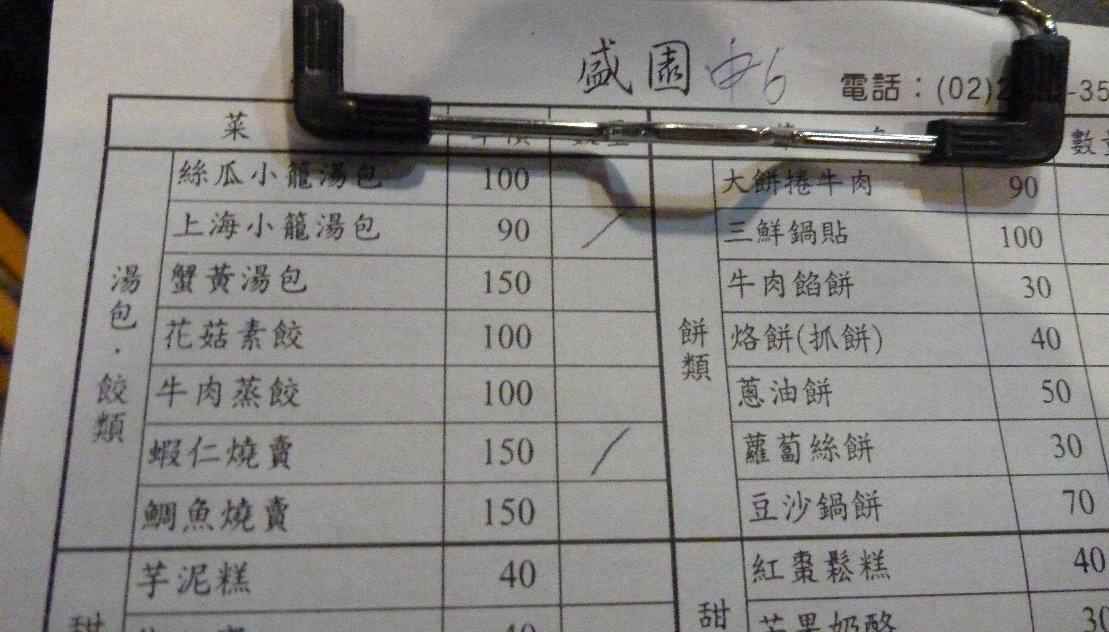 盛園 中6
電話：(02)
菜
數
湯包．餃類
絲瓜小籠湯包 100
上海小籠湯包 90 /
蟹黃湯包 150
花菇素餃 100
牛肉蒸餃 100
蝦仁燒賣 150 /
鯛魚燒賣 150
芋泥糕 40
甜
餅類
大餅捲牛肉 90
三鮮鍋貼 100
牛肉餡餅 30
烙餅(抓餅) 40
蔥油餅 50
蘿蔔絲餅 30
豆沙鍋餅 70
甜
紅棗鬆糕 40
芒果奶酪 30